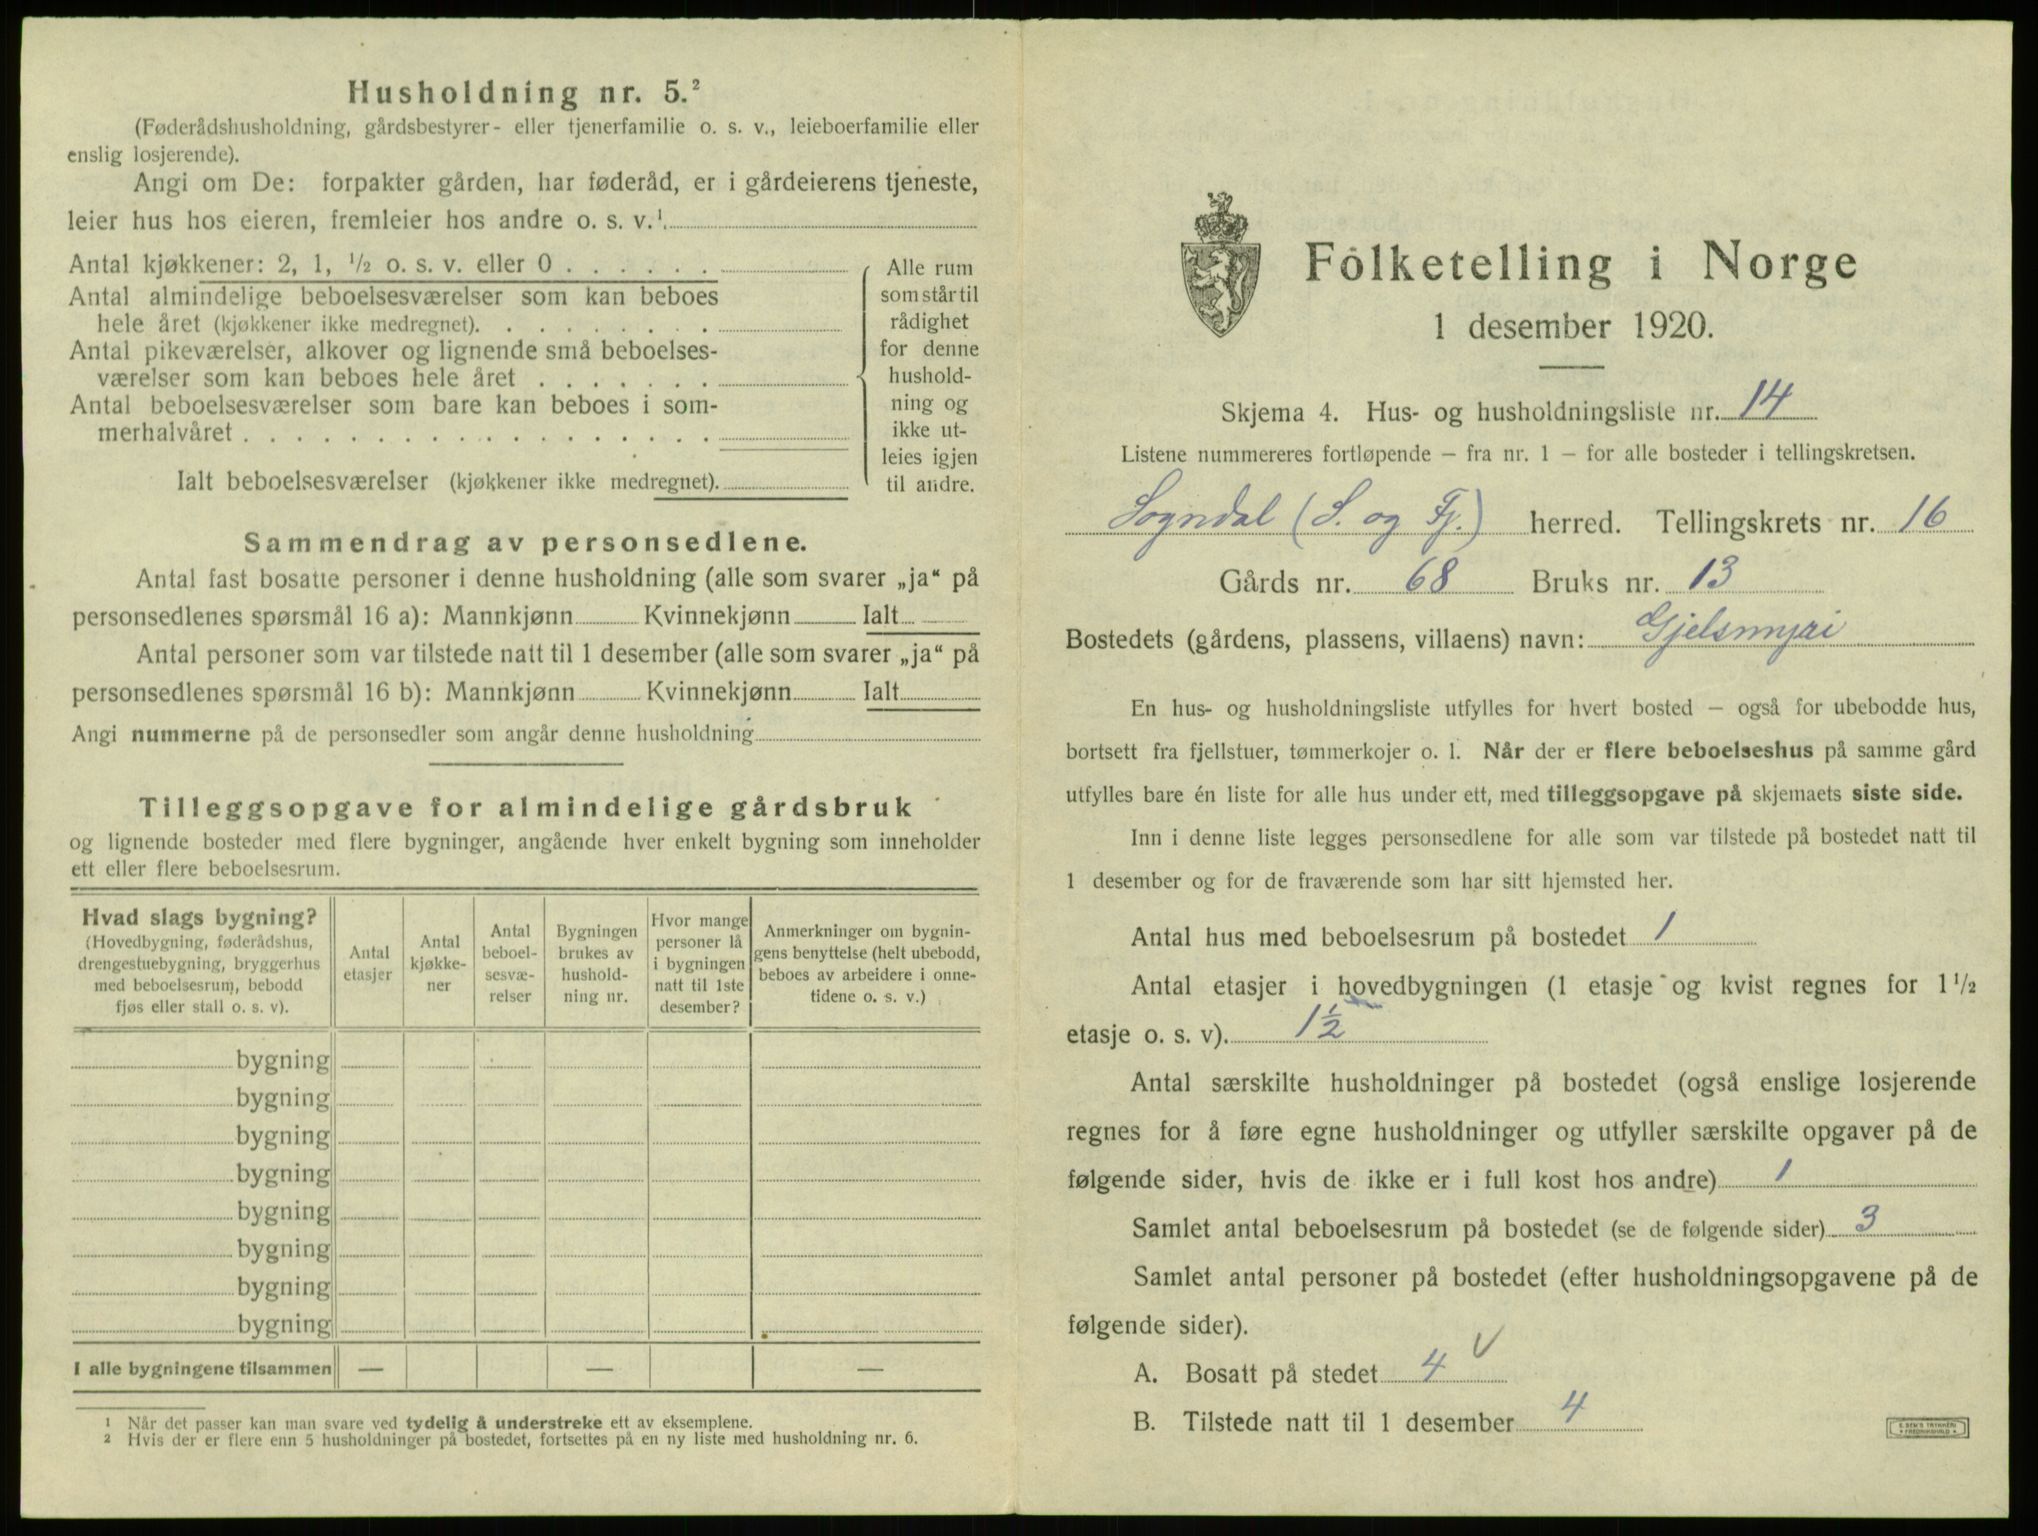 Husholdning nr. 5.²
(Føderådshusholdning, gårdsbestyrer- eller tjenerfamilie o. s. v., leieboerfamilie eller
enslig losjerende).
Angi om De: forpakter gården, har føderåd, er i gårdeierens tjeneste,
leier hus hos eieren, fremleier hos andre o. s. v.¹
Antal kjøkkener: 2, 1, ½ o. s. v. eller 0 . . . . . .
Antal almindelige beboelsesværelser som kan beboes
hele året (kjøkkener ikke medregnet). . . . . . . . .
Antal pikeværelser, alkover og lignende små beboelses-
værelser som kan beboes hele året . . . . . . .
Antal beboelsesværelser som bare kan beboes i som-
merhalvåret . . . . . . . . . . . . . . . . . .
Ialt beboelsesværelser (kjøkkener ikke medregnet).
Alle rum
som står til
rådighet
for denne
hushold-
ning og
ikke ut-
leies igjen
til andre.
Sammendrag av personsedlene.
Antal fast bosatte personer i denne husholdning (alle som svarer „ja“ på
personsedlenes spørsmål 16 a): Mannkjønn Kvinnekjønn Ialt
Antal personer som var tilstede natt til 1 desember (alle som svarer „ja“ på
personsedlenes spørsmål 16 b): Mannkjønn Kvinnekjønn Ialt
Angi nummerne på de personsedler som angår denne husholdning
Tilleggsopgave for almindelige gårdsbruk
og lignende bosteder med flere bygninger, angående hver enkelt bygning som inneholder
ett eller flere beboelsesrum.
Hvad slags bygning?
(Hovedbygning, føderådshus,
drengestuebygning, bryggerhus
med beboelsesrum, bebodd
fjøs eller stall o. s. v).
Antal
etasjer
Antal
kjøkke-
ner
Antal
beboel-
sesvæ-
relser
Bygningen
brukes av
hushold-
ning nr.
Hvor mange
personer lå
i bygningen
natt til 1ste
desember?
Anmerkninger om bygnin-
gens benyttelse (helt ubebodd,
beboes av arbeidere i onne-
tidene o. s. v.)
bygning
bygning
bygning
bygning
bygning
bygning
bygning
bygning
I alle bygningene tilsammen — — —
¹ Når det passer kan man svare ved tydelig å understreke ett av eksemplene.
² Hvis der er flere enn 5 husholdninger på bostedet, fortsettes på en ny liste med husholdning nr. 6.
Folketelling i Norge
1 desember 1920.
Skjema 4. Hus- og husholdningsliste nr. 14
Listene nummereres fortløpende – fra nr. 1 – for alle bosteder i tellingskretsen.
Sogndal (S. og Fj.) herred. Tellingskrets nr. 16
Gårds nr. 68 Bruks nr. 13
Bostedets (gårdens, plassens, villaens) navn: Gjelsmyri
En hus- og husholdningsliste utfylles for hvert bosted – også for ubebodde hus,
bortsett fra fjellstuer, tømmerkojer o. l. Når der er flere beboelseshus på samme gård
utfylles bare én liste for alle hus under ett, med tilleggsopgave på skjemaets siste side.
Inn i denne liste legges personsedlene for alle som var tilstede på bostedet natt til
1 desember og for de fraværende som har sitt hjemsted her.
Antal hus med beboelsesrum på bostedet 1
Antal etasjer i hovedbygningen (1 etasje og kvist regnes for 1½
etasje o. s. v). 1½
Antal særskilte husholdninger på bostedet (også enslige losjerende
regnes for å føre egne husholdninger og utfyller særskilte opgaver på de
følgende sider, hvis de ikke er i full kost hos andre) 1
Samlet antal beboelsesrum på bostedet (se de følgende sider) 3
Samlet antal personer på bostedet (efter husholdningsopgavene på de
følgende sider).
A. Bosatt på stedet 4 v
B. Tilstede natt til 1 desember 4
E. SEM'S TRYKKERI
FREDRIKSHALD